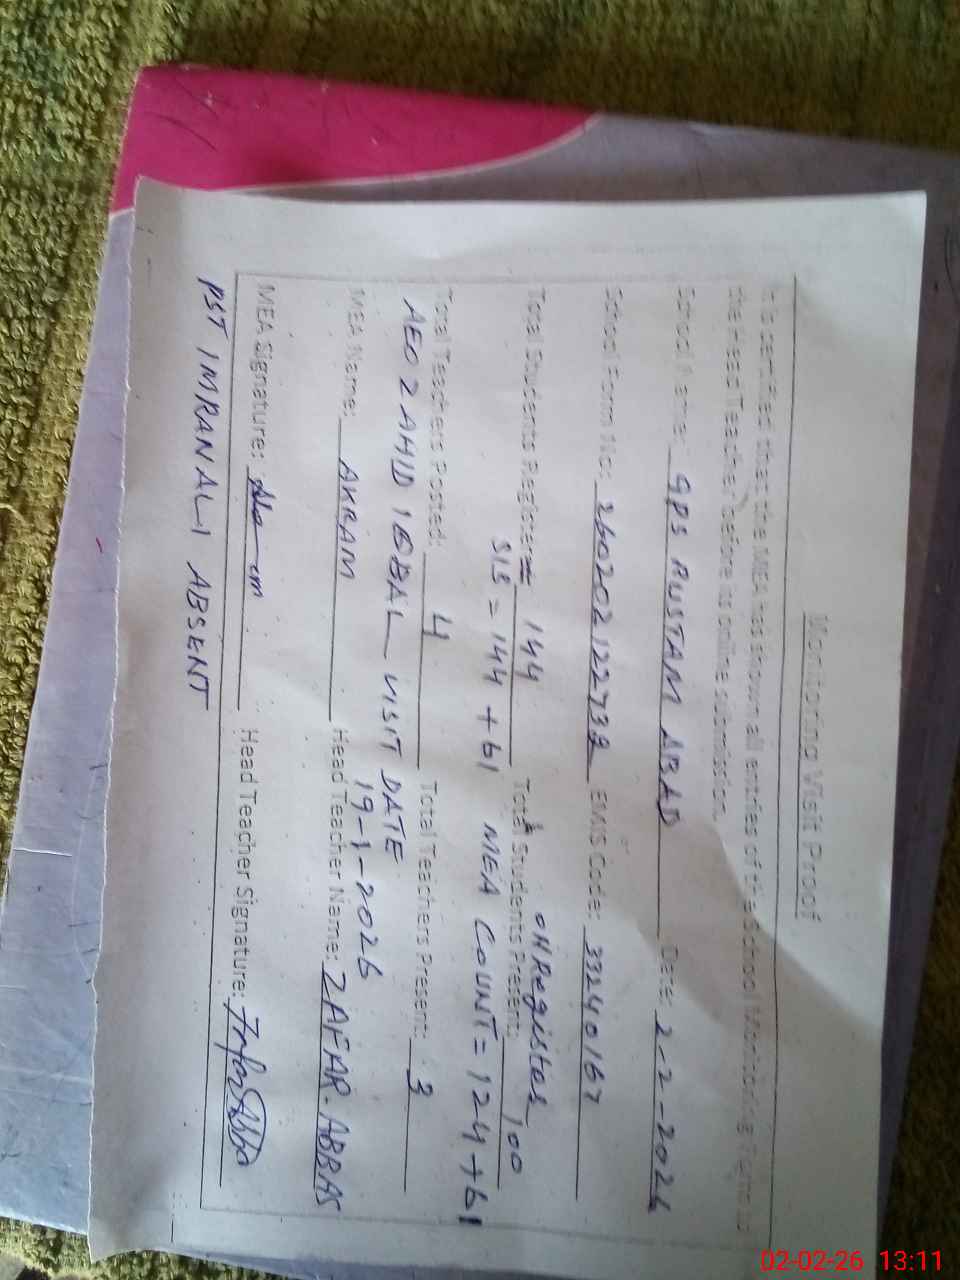 Monitoring Visit Proof
It is certified that the MEA has shown all entries of the School Monitoring Form to
the Head Teacher before its online submission.
School Name: GPS RUSTAM ABAD Date: 2-2-2026
School Form No: EMIS Code: 33240167
Total Students Registered 144 Total Students Present: ON Register 100
SIS = 144 + 61 MEA COUNT = 124 + 61
Total Teachers Posted: 4 Total Teachers Present: 3
AEO ZAHID IQBAL VISIT DATE
19-1-2026
MEA Name: AKRAM Head Teacher Name: ZAFAR ABBAS
MEA Signature: Head Teacher Signature:
PST IMRAN ALI ABSENT
02-02-26 13:11